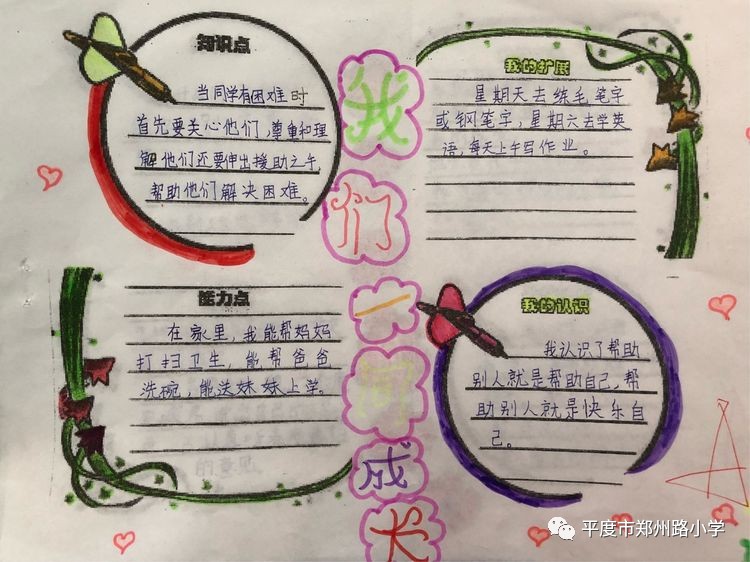 知识点
当同学有困难时
首先要关心他们，尊重和理
解他们还要伸出援助之午
帮助他们解决困难。
我的扩展
星期天去练毛笔字
或钢笔字，星期六去学英
语，每天上午写作业。
我
们
一
同
成
长
能力点
在家里，我能帮妈妈
打扫卫生，能帮爸爸
洗碗，能送妹妹上学。
我的认识
我认识了帮助
别人就是帮助自己，帮
助别人就是快乐自
己。
平度市郑州路小学